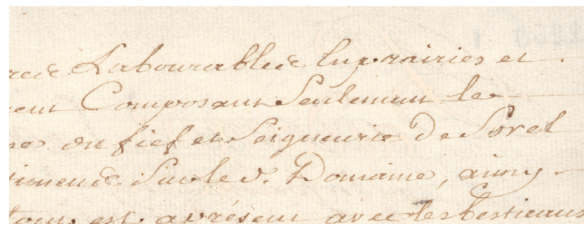 Labourable en prairies et
Composant Seulement le
du fief et Seigneurie De Sorel
Sur le d. Domaine, ainsy
tout est apresent avec les bestiaux